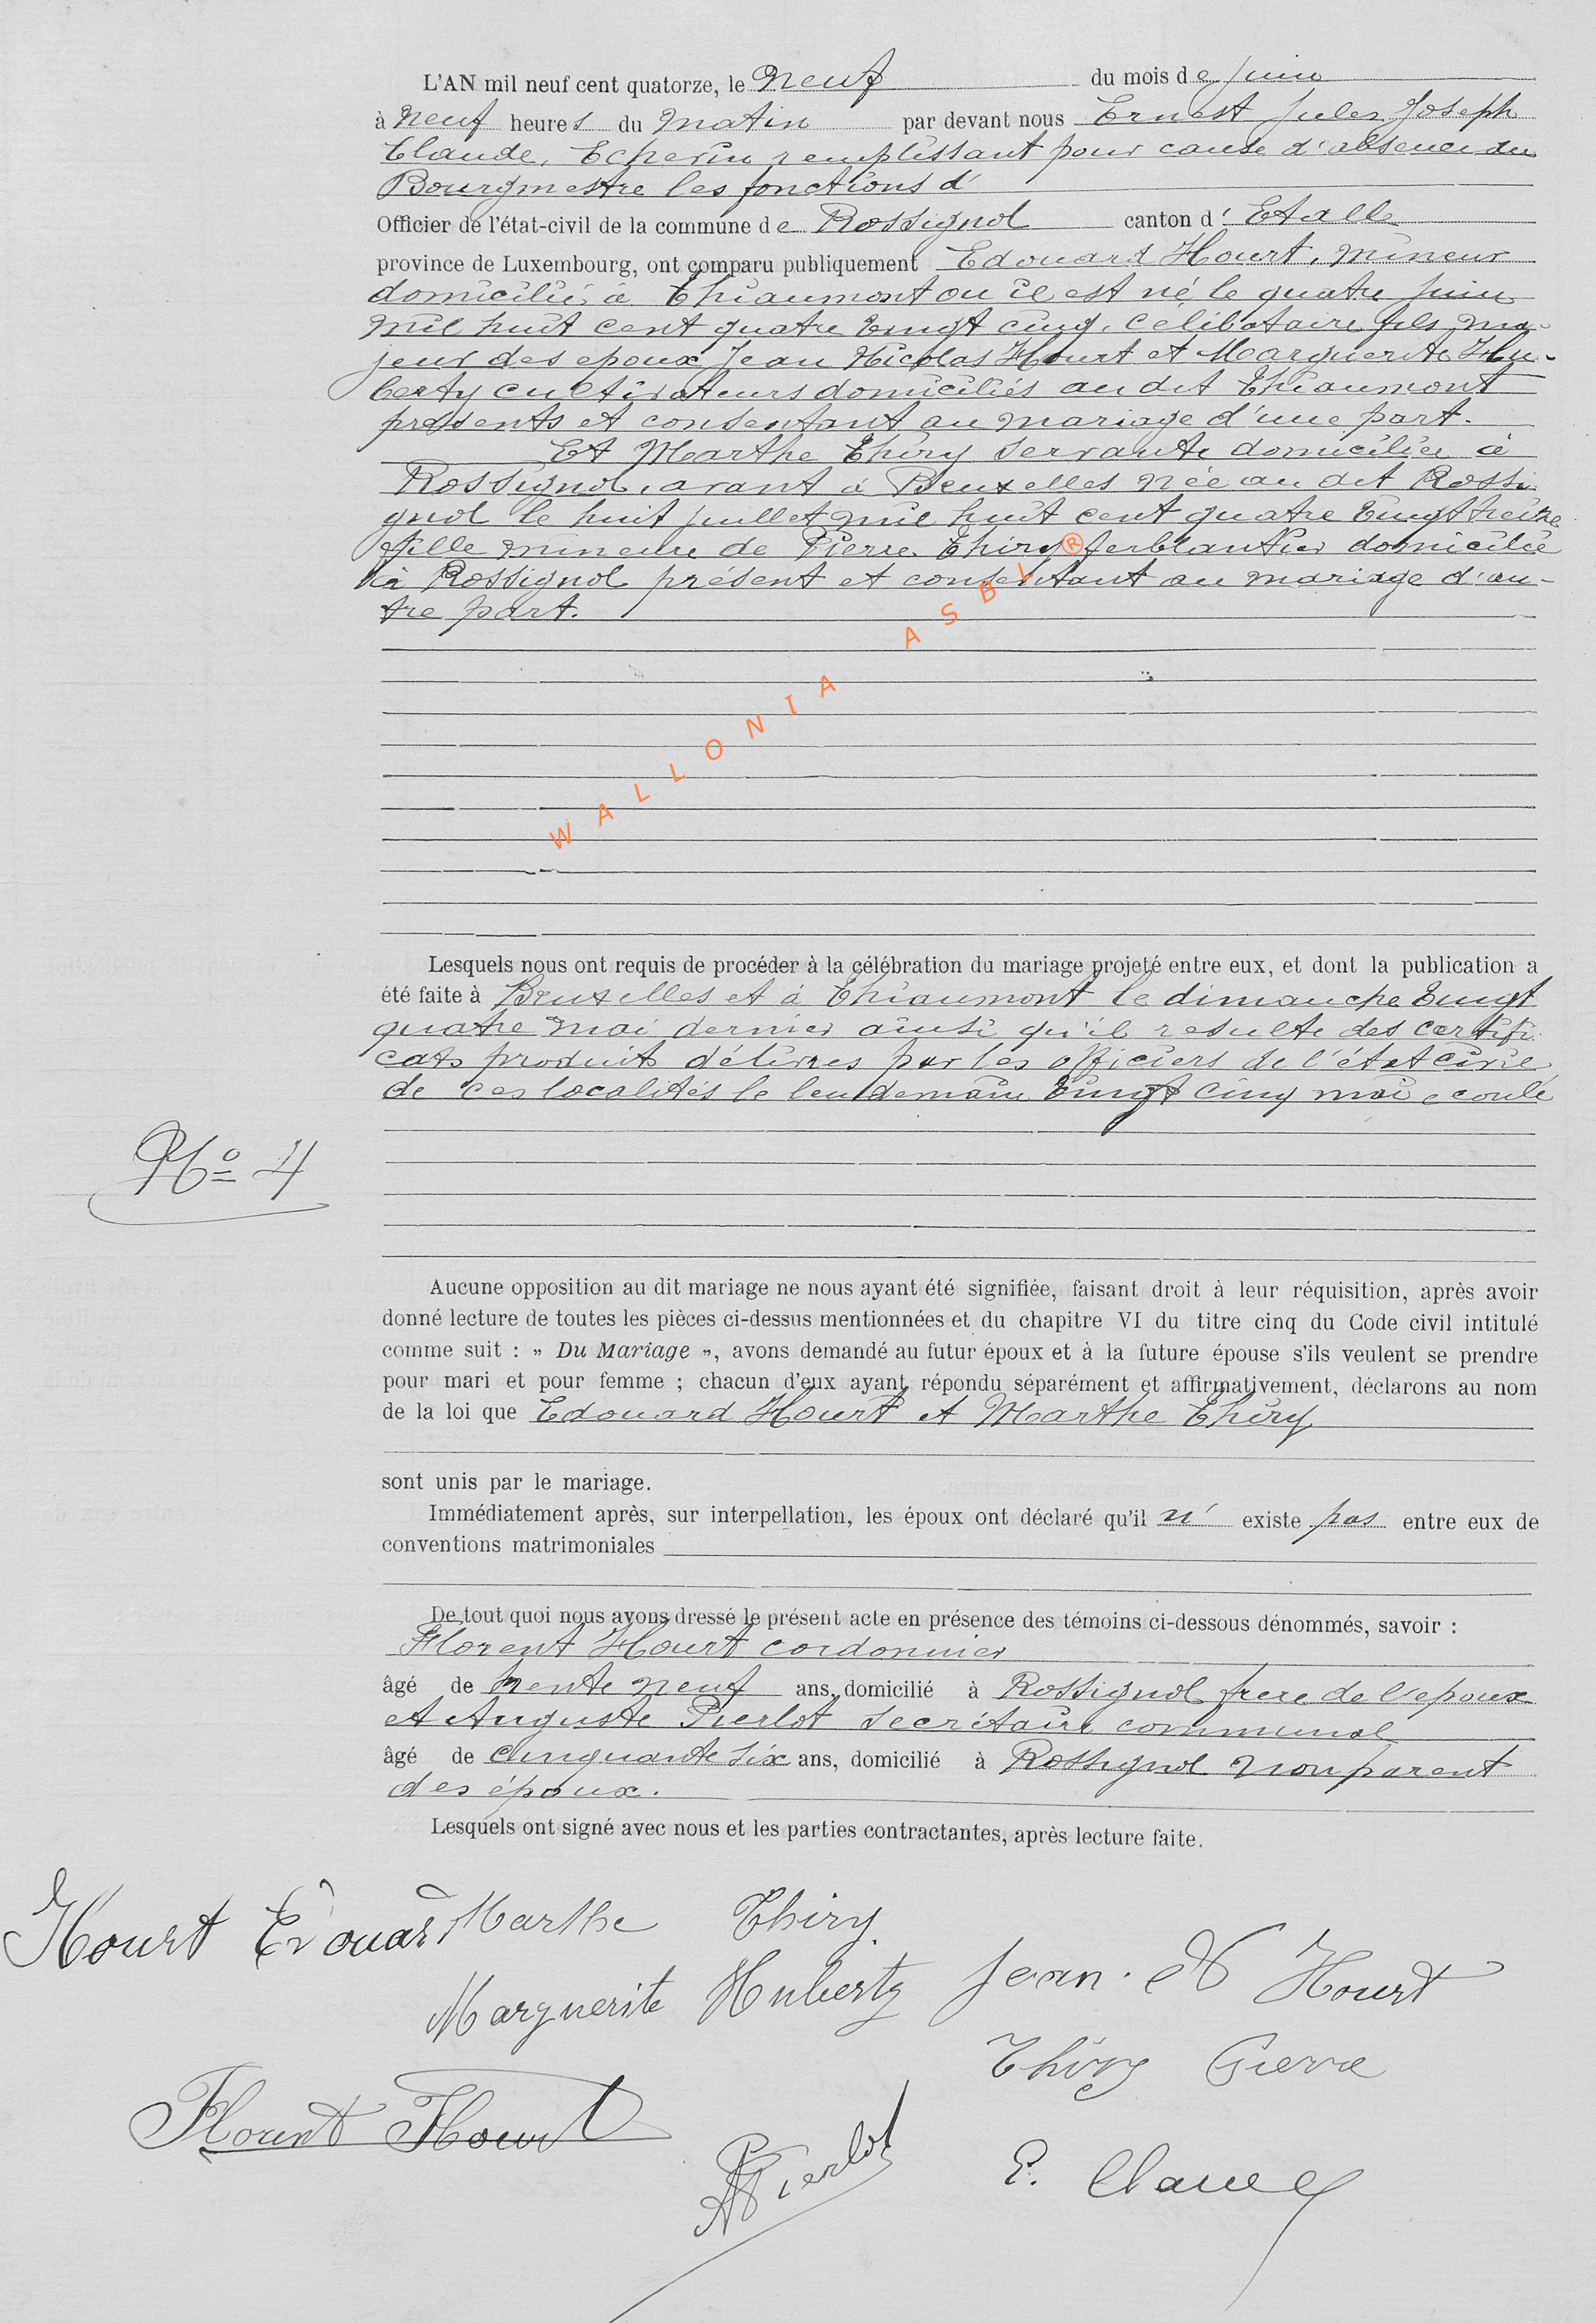 L'AN mil neuf cent quatorze, le Neuf du mois de Juin
à Neuf heures du Matin par devant nous Ernest Jules Joseph
Claude, Echevin remplissant pour cause d'absence du
Bourgmestre les fonctions d'
Officier de l'état-civil de la commune de Rossignol canton d'Etalle
province de Luxembourg, ont comparu publiquement Edouard Hourt, mineur
domicilié à Thiaumont ou il est né le quatre juin
mil huit cent quatre vingt cinq, celibataire fils ma-
jeur des epoux Jean Nicolas Hourt et Marguerite Hu-
berty cultivateurs domiciliés au dit Thiaumont
présents et consentant au mariage d'une part.
Et Marthe Thiry servante domiciliée à
Rossignol, avant à Bruxelles née au dit Rossi-
gnol le huit juillet mil huit cent quatre vingt treize
fille mineure de Pierre Thiry ferblantier domicilié
à Rossignol présent et consentant au mariage d'au-
tre part.
WALLONIA ASBL ®
Lesquels nous ont requis de procéder à la célébration du mariage projeté entre eux, et dont la publication a
été faite à Bruxelles et à Thiaumont le dimanche vingt
quatre mai dernier ainsi qu'il resulte des certifi-
cats produits délivrés par les officiers de l'état civil
de ces localités le lendemain vingt cinq mai ecoulé
No 4
Aucune opposition au dit mariage ne nous ayant été signifiée, faisant droit à leur réquisition, après avoir
donné lecture de toutes les pièces ci-dessus mentionnées et du chapitre VI du titre cinq du Code civil intitulé
comme suit : » Du Mariage », avons demandé au futur époux et à la future épouse s'ils veulent se prendre
pour mari et pour femme ; chacun d'eux ayant répondu séparément et affirmativement, déclarons au nom
de la loi que Edouard Hourt et Marthe Thiry
sont unis par le mariage.
Immédiatement après, sur interpellation, les époux ont déclaré qu'il n' existe pas entre eux de
conventions matrimoniales
De tout quoi nous avons dressé le présent acte en présence des témoins ci-dessous dénommés, savoir :
Florent Hourt cordonnier
âgé de trente neuf ans, domicilié à Rossignol frere de l'epoux
et Auguste Pierlot secrétaire communal
âgé de cinquante six ans, domicilié à Rossignol non parent
des époux.
Lesquels ont signé avec nous et les parties contractantes, après lecture faite.
Hourt Edouard Marthe Thiry
Marguerite Huberty Jean. N Hourt
Thiry Pierre
Florent Hourt
A Pierlot
E. Claude